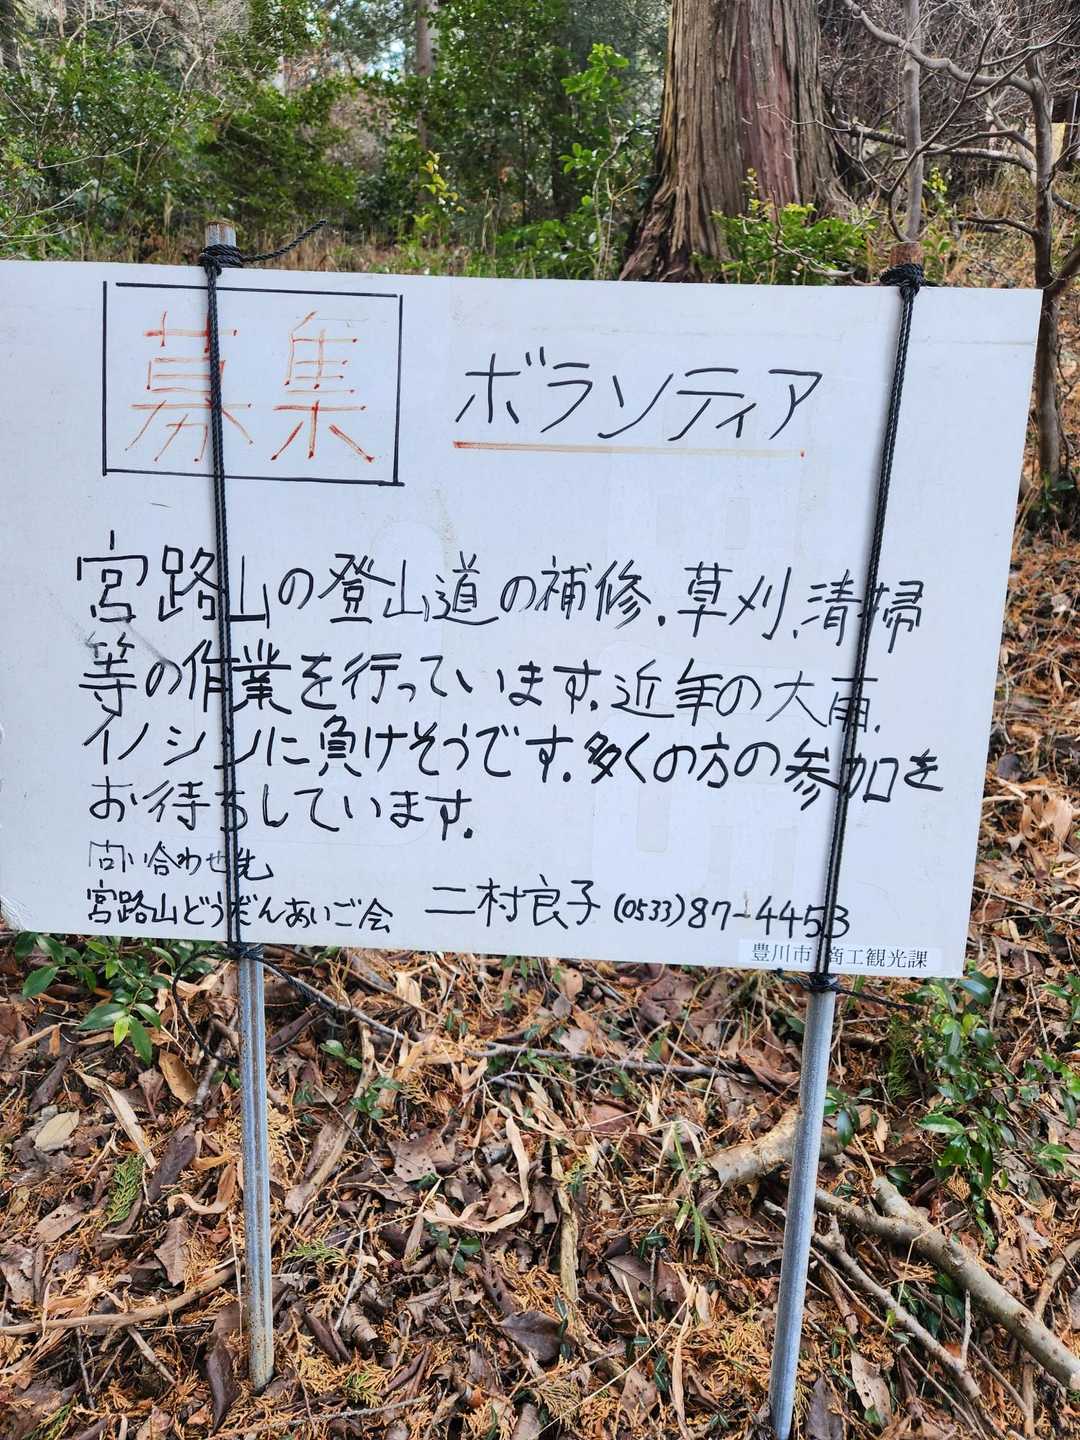 募集 ボランティア
宮路山の登山道の補修、草刈、清掃
等の作業を行っています。近年の大雨、
イノシシに負けそうです。多くの方の参加を
お待ちしています。
問い合わせ先
宮路山どうだんあいご会 二村良子 (0533)87-4453
豊川市 商工観光課